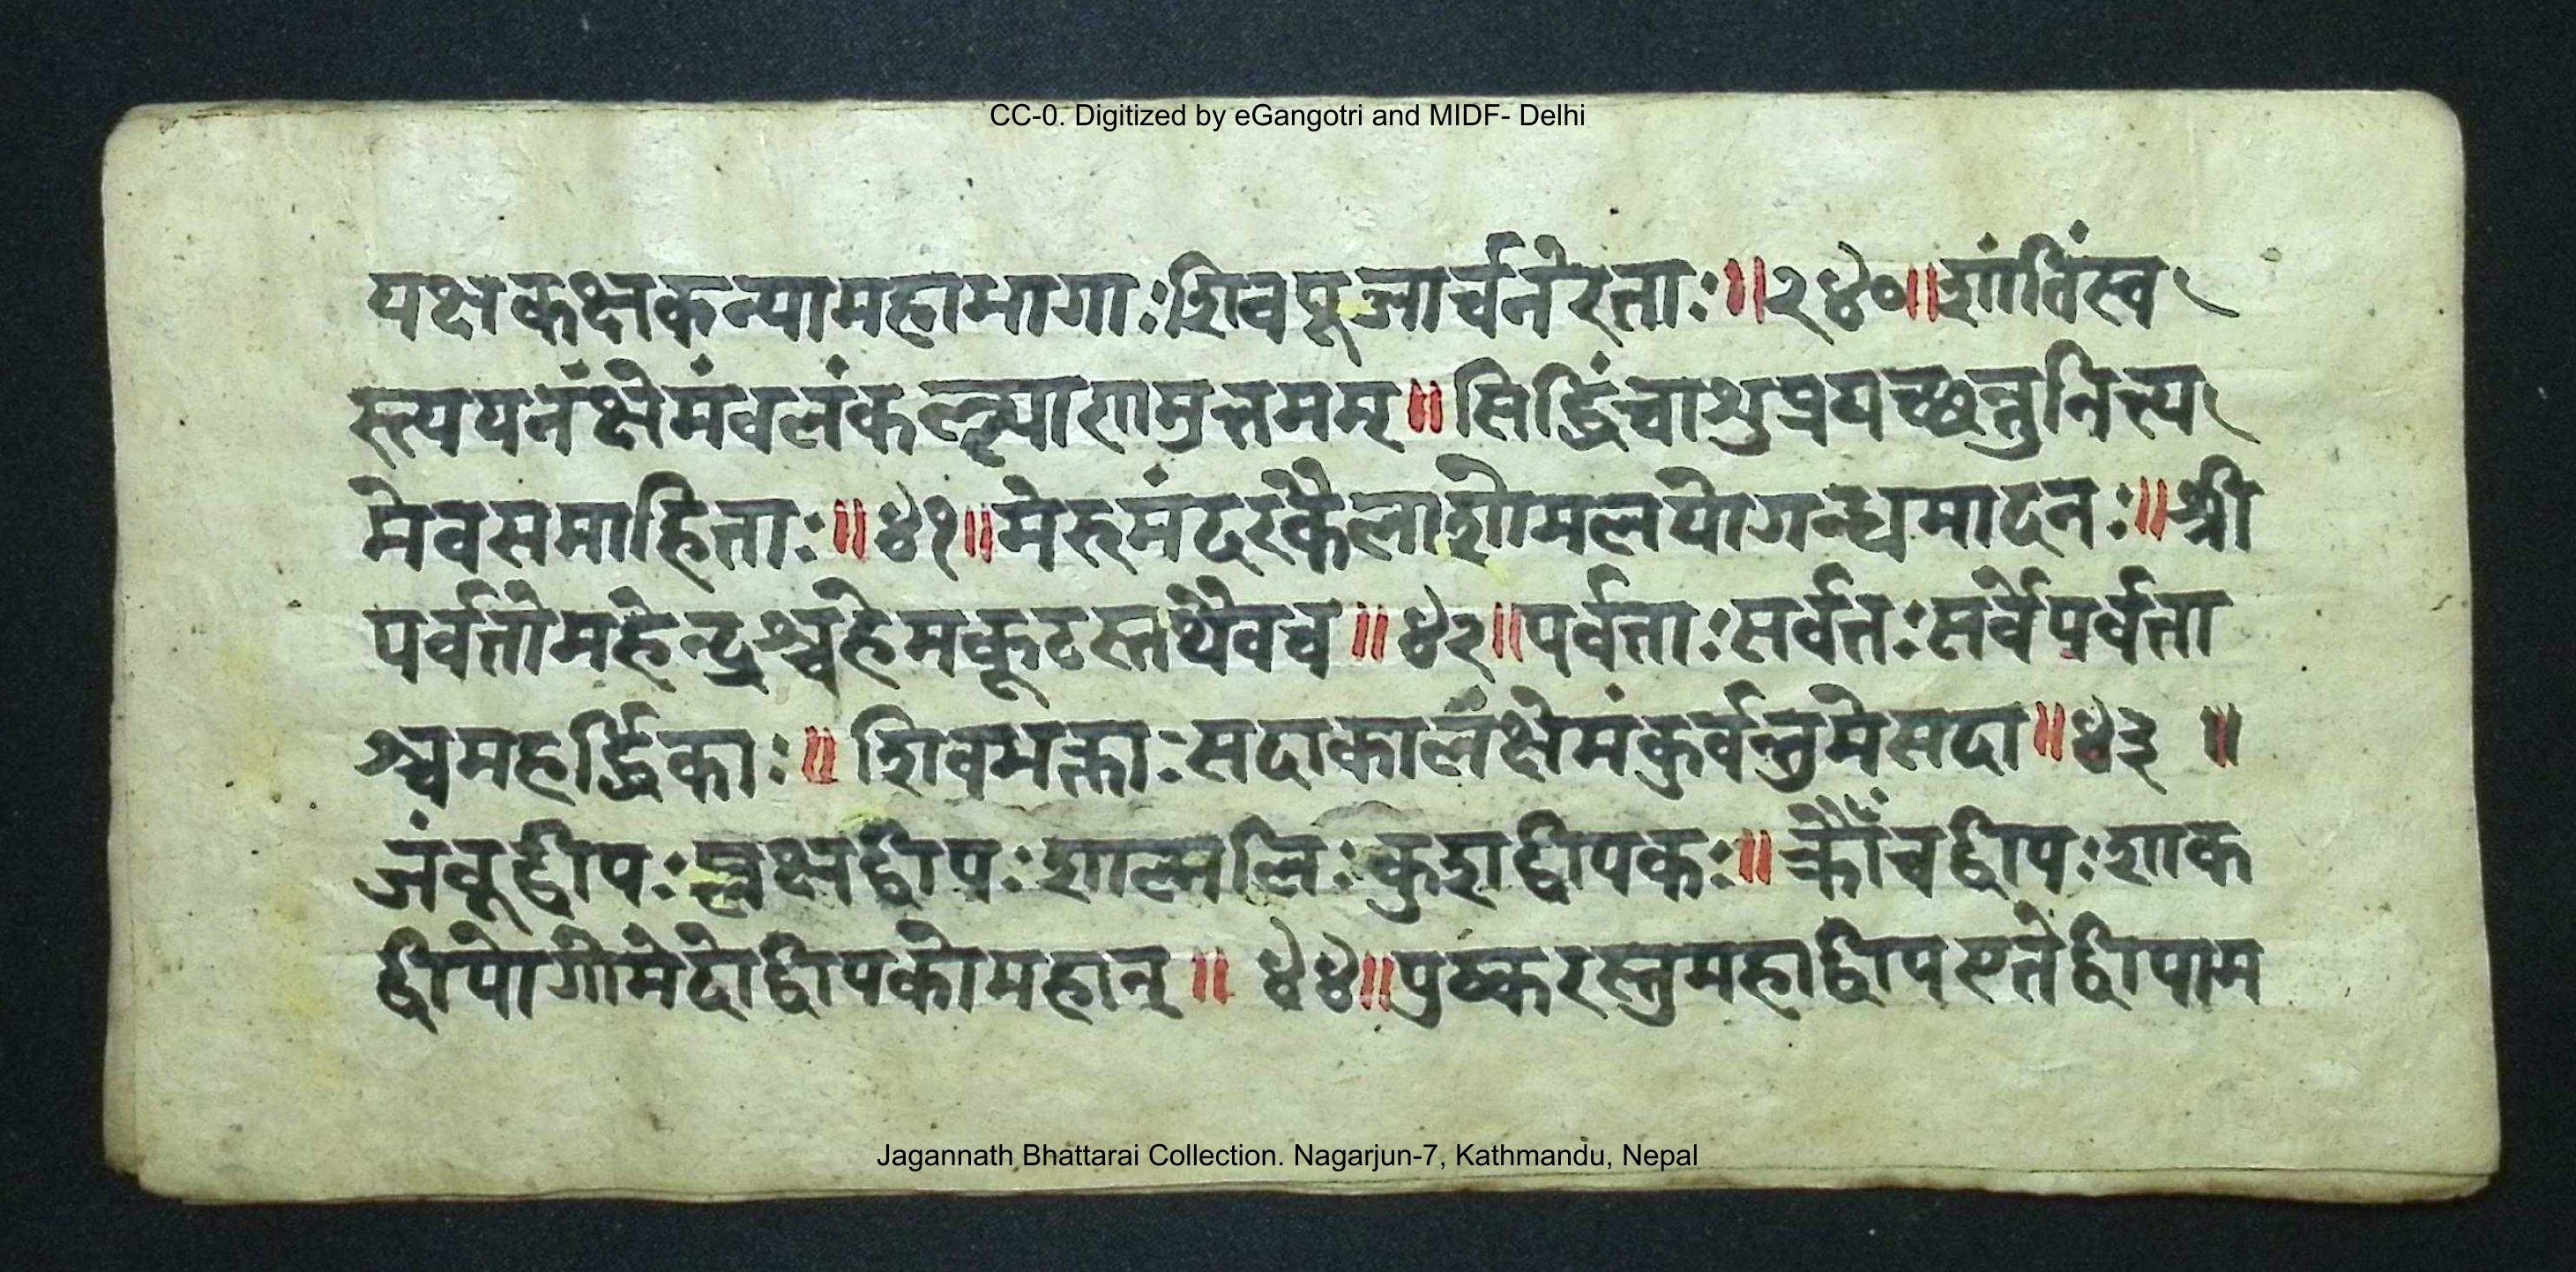 CC-0. Digitized by eGangotri and MIDF- Delhi
यक्षकक्षकन्यामहाभागाःशिवपूजार्चनेरताः॥२४०॥शांतिंस्व
स्त्ययनंक्षेमंवलंकल्याणमुत्तमम्॥सिद्धिंचाशुप्रयच्छन्तुनित्य
मेवसमाहिताः॥४१॥मेरुमंदरकैलाशोमलयोगन्धमादनः॥श्री
पर्वतोमहेन्द्रश्चहेमकूटस्तथैवच॥४२॥पर्वताःसर्वतःसर्वेपर्वता
श्चमहर्द्धिकाः॥शिवभक्ताःसदाकालंक्षेमंकुर्वन्तुमेसदा॥४३॥
जंवूद्वीपःप्लक्षद्वीपःशाल्मलिःकुशद्वीपकः॥क्रौंचद्वीपःशाक
द्वीपोगोमेदोद्वीपकोमहान्॥४४॥पुष्करस्तुमहाद्वीपएतेद्वीपाम
Jagannath Bhattarai Collection. Nagarjun-7, Kathmandu, Nepal